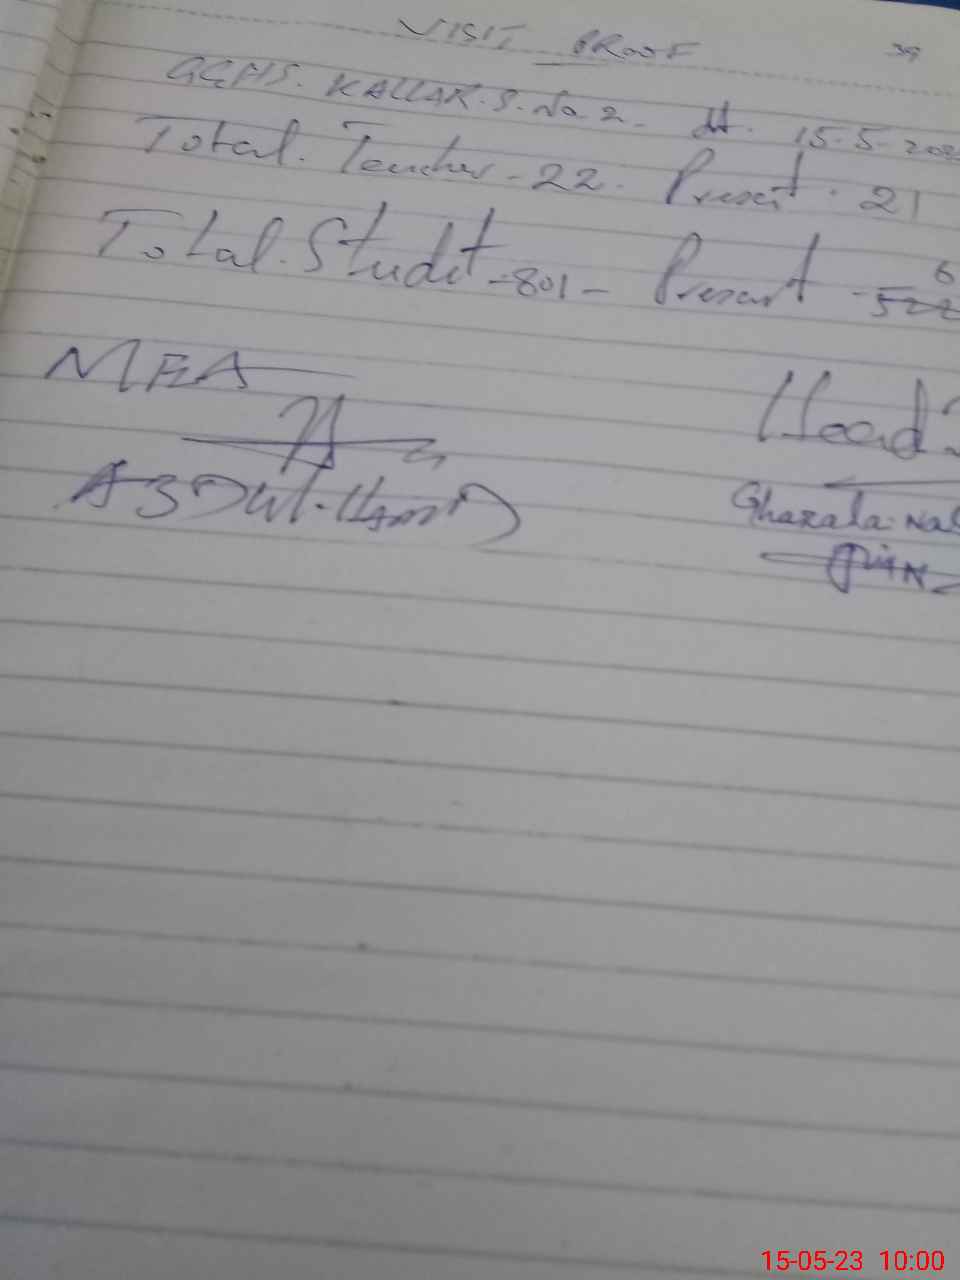 VISIT PROOF 39
GGHS. KALLAR.S.No.2. dt. 15-5-202
Total. Teacher - 22. Present. 21
Total. Studet - 801 - Present - 522
6
MEA
Head
ABDUL.HamiD
Ghazala Na
15-05-23 10:00